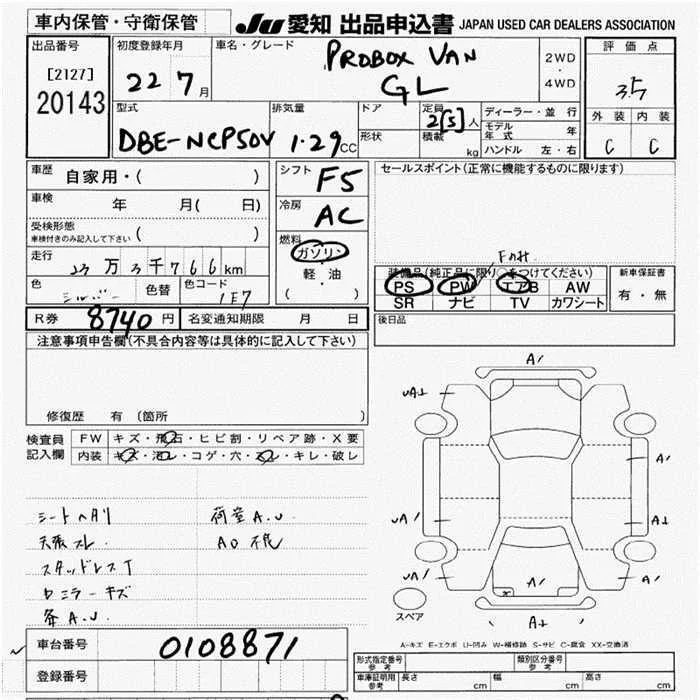 車内保管・守衛保管
JU 愛知 出品申込書 JAPAN USED CAR DEALERS ASSOCIATION
出品番号
[2127]
20143
初度登録年月
22 7月
車名・グレード
PROBOX VAN
GL
2WD
・
4WD
評価点
3.5
外装 内装
C C
型式
DBE-NCP50V
排気量
1.29CC
ドア
形状
定員
2[5]人
積載
kg
ディーラー・並行
モデル年式 年
ハンドル 左・右
車歴
自家用・( )
車検
年 月( 日)
受検形態
車検付きのみ記入して下さい ( )
走行
23万3千766km
色
シルバー
色替
色コード
1E7
シフト
F5
冷房
AC
燃料
ガソリン
・
軽・油
( )
セールスポイント(正常に機能するものに限ります)
装備品(純正品に限り○をつけてください)
PS PW エアB AW
SR ナビ TV カワシート
新車保証書
有・無
R券 8740円 名変通知期限 月 日
後日品
注意事項申告欄(不具合内容等は具体的に記入して下さい)
修復歴 有 (箇所 )
検査員
記入欄
FW キズ・飛石・ヒビ割・リペア跡・X要
内装 キズ・汚レ・コゲ・穴・スレ・キレ・破レ
シートヘタリ
荷室A.U
天張スレ
スタッドレスT
A/
A/
A/
A/
スペア
A-キズ E-エクボ U-凹み W-補修跡 S-サビ C-腐食 XX-交換済
車台番号 0108871
登録番号
形式指定番号
参考
類別区分番号
参考
車庫証明用
参考
長さ cm 幅 cm 高さ cm